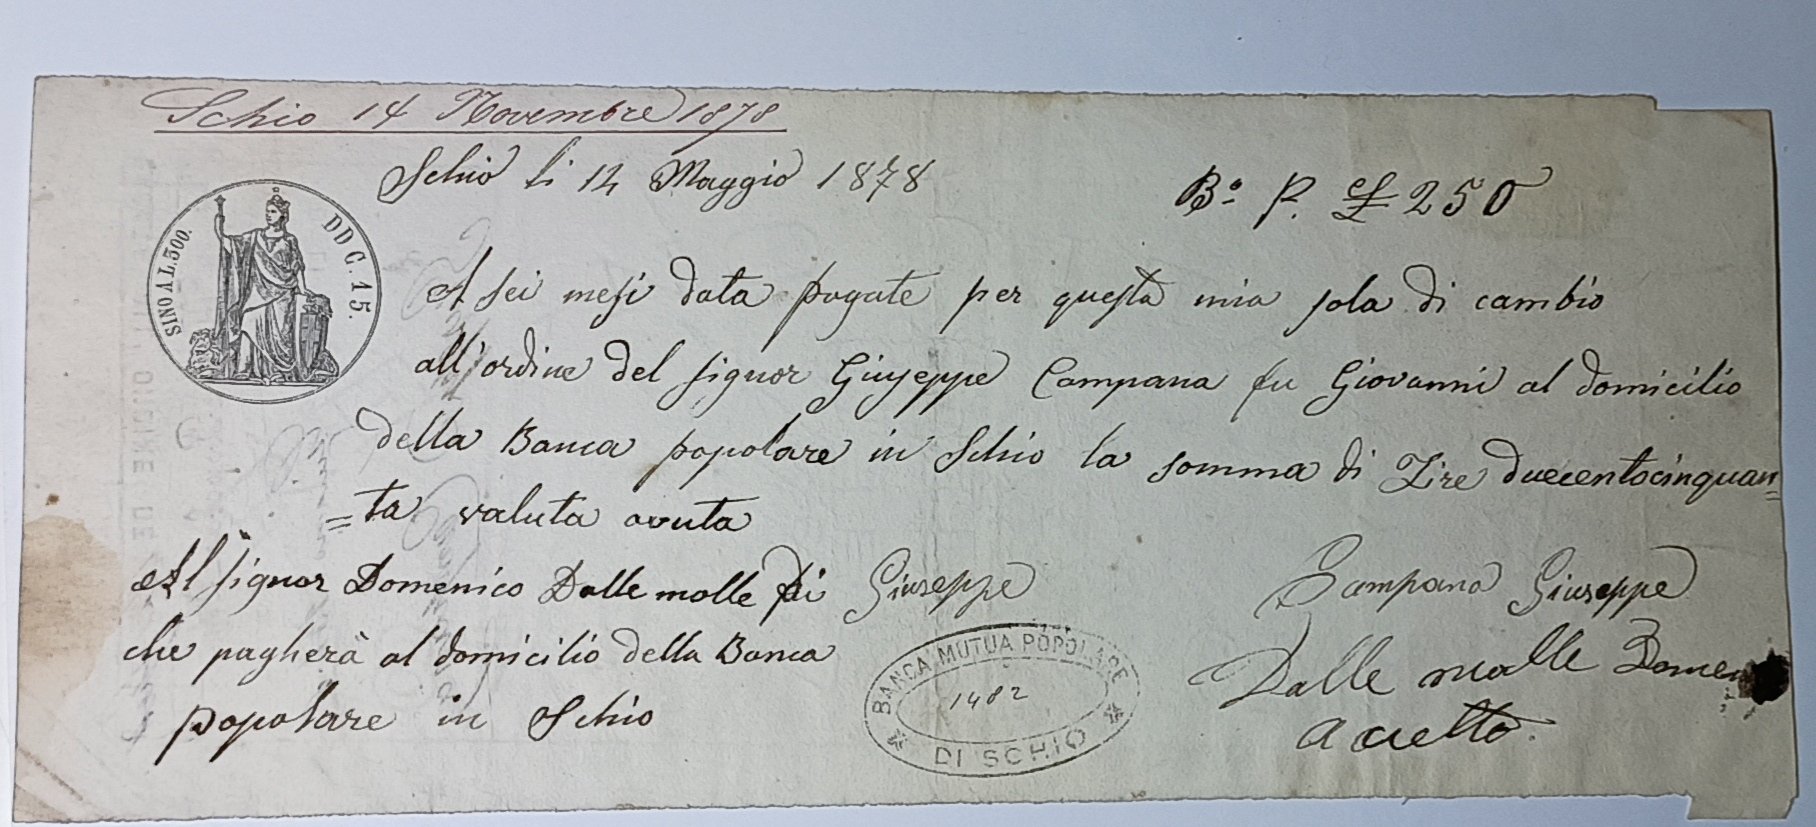 Schio 14 Novembre 1878
Schio li 14 Maggio 1878
B.º P. £ 250
SINO A L. 300.
DD C. 15.
A sei mesi data pagate per questa mia sola di cambio
all'ordine del signor Giuseppe Campana fu Giovanni al domicilio
della Banca popolare in Schio la somma di Lire duecentocinquan=
=ta valuta avuta
Al signor Domenico Dalle molle di Giuseppe
Campana Giuseppe
che pagherà al domicilio della Banca
popolare in Schio
BANCA MUTUA POPOLARE
1482
DI SCHIO
Dalle molle Domen
accetto.